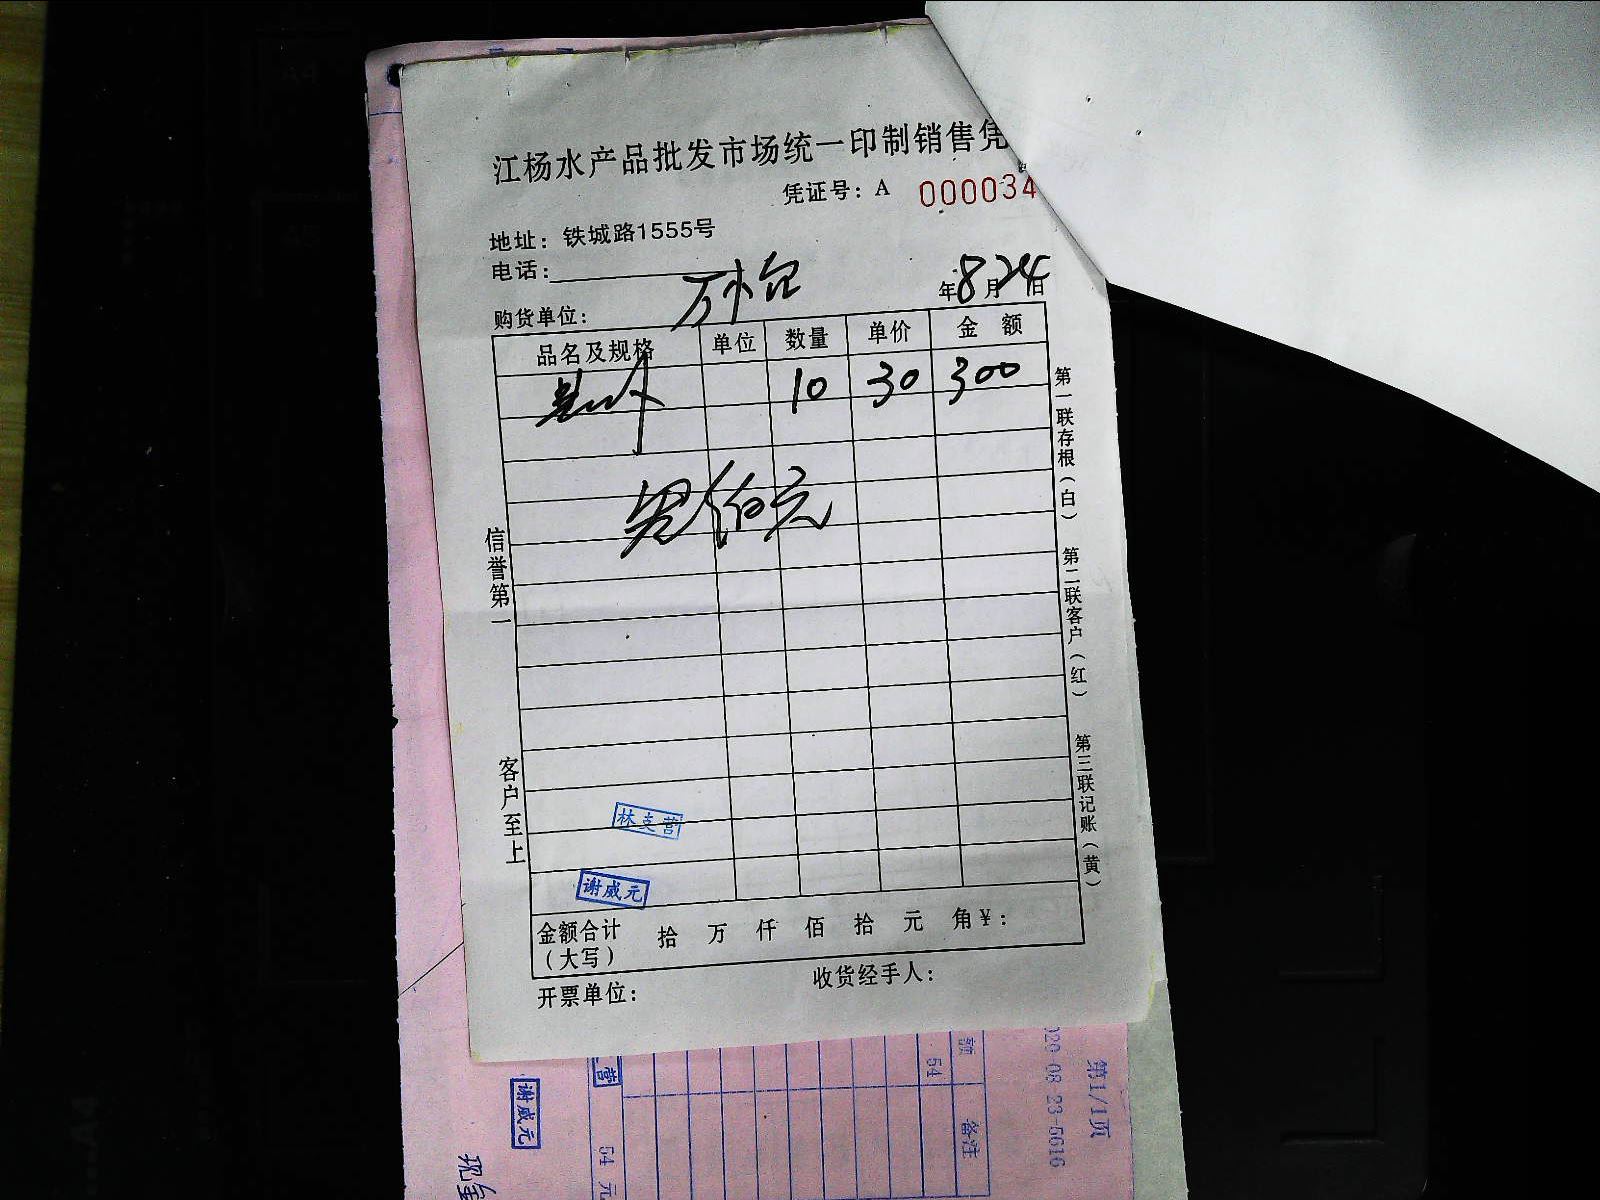 江杨水产品批发市场统一印制销售凭
凭证号：A 000034
地址：铁城路1555号
电话：
年8月24日
购货单位：
品名及规格 单位 数量 单价 金额
10 30 300
佰元
信誉第一
客户至上
第一联存根（白）
第二联客户（红）
第三联记账（黄）
林支营
谢威元
金额合计（大写） 拾 万 仟 佰 拾 元 角￥：
开票单位：
收货经手人：
第1/1页
020-08-23-5616
额
54
备注
营
54 元
谢威元
现金